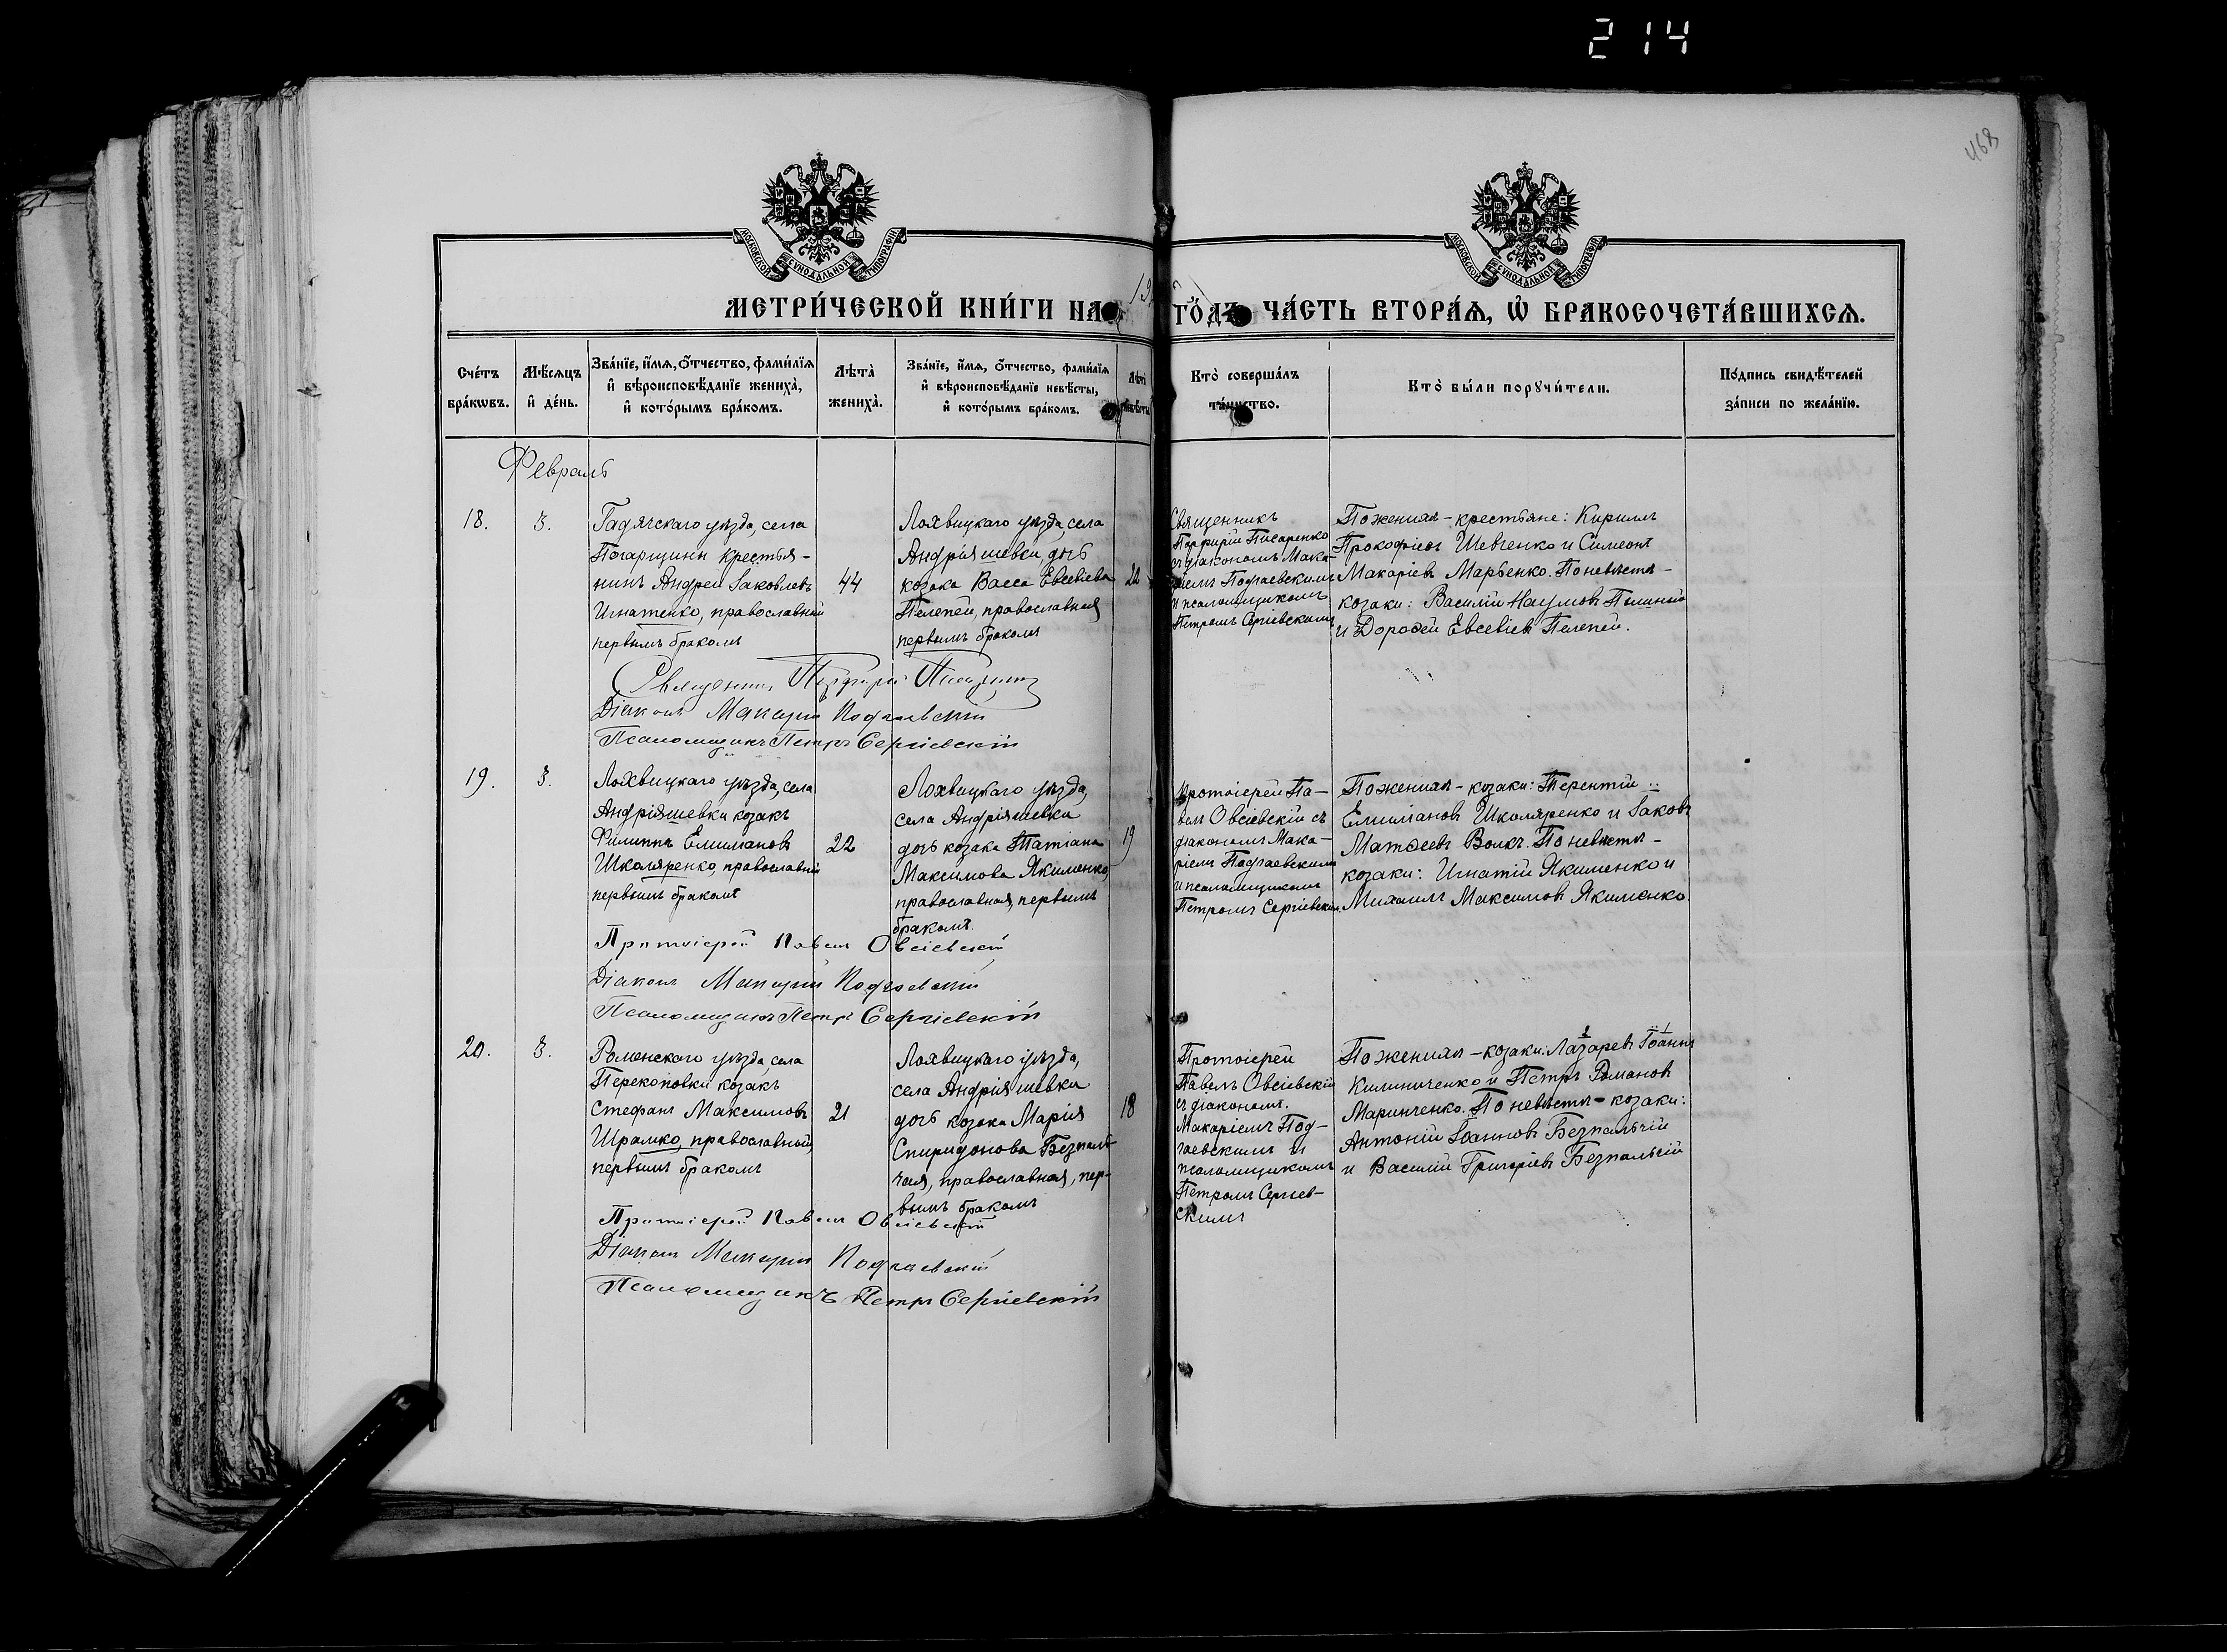 214
468
МОСКОВСКОЙ СУНОДАЛЬНОЙ ТИПОГРАФІИ
МОСКОВСКОЙ СУНОДАЛЬНОЙ ТИПОГРАФІИ
МЕТРИ́ЧЕСКОЙ КНИ́ГИ НА
ГО́ДЪ ЧА́СТЬ ВТОРА́Ѧ, Ѽ БРАКОСОЧЕТА́ВШИХСѦ.
Сче́тъ
бра́кѡвъ.
Мѣ́сѧцъ
и҆ де́нь.
Зва́нїе, и҆́мѧ, ѻ҆́тчество, фами́лїѧ
и҆ вѣроисповѣ́данїе жениха̀,
и҆ кото́рымъ бра́комъ.
Лѣта̀
жениха̀.
Зва́нїе, и҆́мѧ, ѻ҆́тчество, фами́лїѧ
и҆ вѣроисповѣ́данїе невѣ́сты,
и҆ кото́рымъ бра́комъ.
Лѣта̀
невѣ́сты
Кто̀ соверша́лъ
та́инство.
Кто̀ бы́ли порꙋчи́тели.
По́дпись свидѣ́телей
за́писи по жела́нїю.
Февраль
18.
3.
Гадячскаго уѣзда, села
Погарщины крестья-
нинъ Андрей Іаковлевъ
Игнатенко, православный
первымъ бракомъ
44
Лохвицкаго уѣзда, села
Андріяшевки дочь
козака Васса Евсевіева
Пелепей, православная
первымъ бракомъ
Священникъ
Порфирій Писаренко
съ діакономъ Мака-
ріемъ Подгаевскимъ
и псаломщикомъ
Петромъ Сергіевскимъ
По женихѣ - крестьяне: Кириллъ
Прокофіевъ Шевченко и Симеонъ
Макаріевъ Марченко. По невѣстѣ -
козаки: Василій Наумовъ
и Дороѳей Евсевіевъ Пелепей.
Священникъ Порфирій Писаренко
Діаконъ Макарій Подгаевскій
Псаломщикъ Петръ Сергіевскій
19.
3.
Лохвицкаго уѣзда, села
Андріяшевки козакъ
Филиппъ Емиліановъ
Школяренко, православный
первымъ бракомъ
22
Лохвицкаго уѣзда,
села Андріяшевки
дочь козака Татіана
Максимова Якименко,
православная, первымъ
бракомъ.
19
Протоіерей Па-
велъ Овсіевскій съ
діакономъ Мака-
ріемъ Подгаевскимъ
и псаломщикомъ
Петромъ Сергіевскимъ
По женихѣ - козаки: Терентій
Емиліановъ Школяренко и Іаковъ
Матѳеевъ Волкъ. По невѣстѣ -
козаки: Игнатій Якименко и
Михаилъ Максимовъ Якименко.
Протоіерей Павелъ Овсіевскій
Діаконъ Макарій Подгаевскій
Псаломщикъ Петръ Сергіевскій
20.
3.
Роменскаго уѣзда, села
Перекоповки козакъ
Стефанъ Максимовъ
Шрамко, православный,
первымъ бракомъ
21
Лохвицкаго уѣзда,
села Андріяшевки
дочь козака Марія
Спиридонова Безпаль-
чая, православная, пер-
вымъ бракомъ
18
Протоіерей
Павелъ Овсіевскій
съ діакономъ
Макаріемъ Под-
гаевскимъ и
псаломщикомъ
Петромъ Сергіев-
скимъ
По женихѣ - козаки: Лазаревъ Іоаннъ
Килиниченко и Петръ Романовъ
Маринченко. По невѣстѣ - козаки:
Антоній Іоанновъ Безпальчій
и Василій Григоріевъ Безпальчій
Протоіерей Павелъ Овсіевскій
Діаконъ Макарій Подгаевскій
Псаломщикъ Петръ Сергіевскій